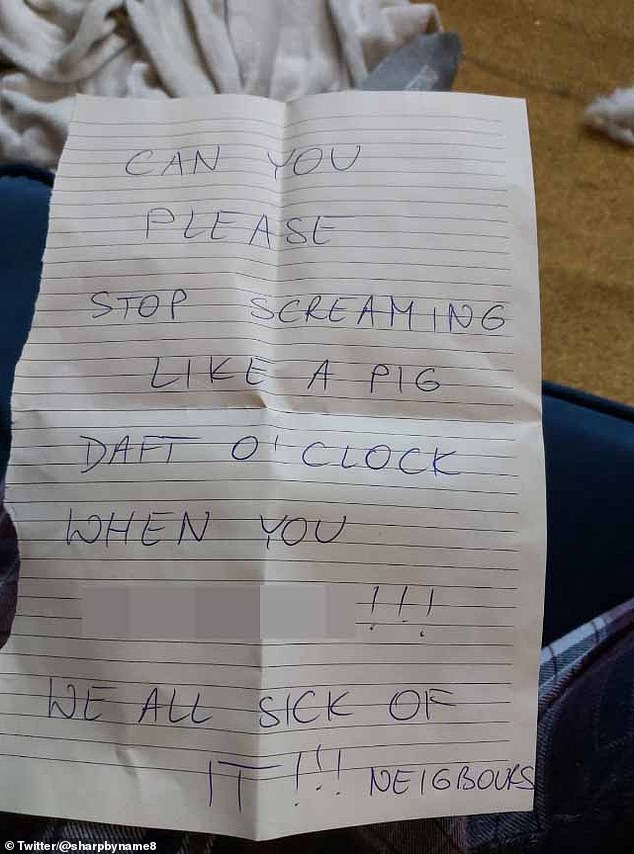 CAN YOU
PLEASE
STOP SCREAMING
LIKE A PIG
DAFT O'CLOCK
WHEN YOU
!!!
WE ALL SICK OF
IT!!! NEIGBOURS
© Twitter/@sharpbyname8